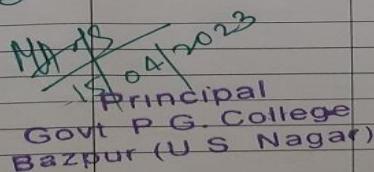 15/04/2023
Principal
Govt P. G. College
Bazpur (U S Nagar)